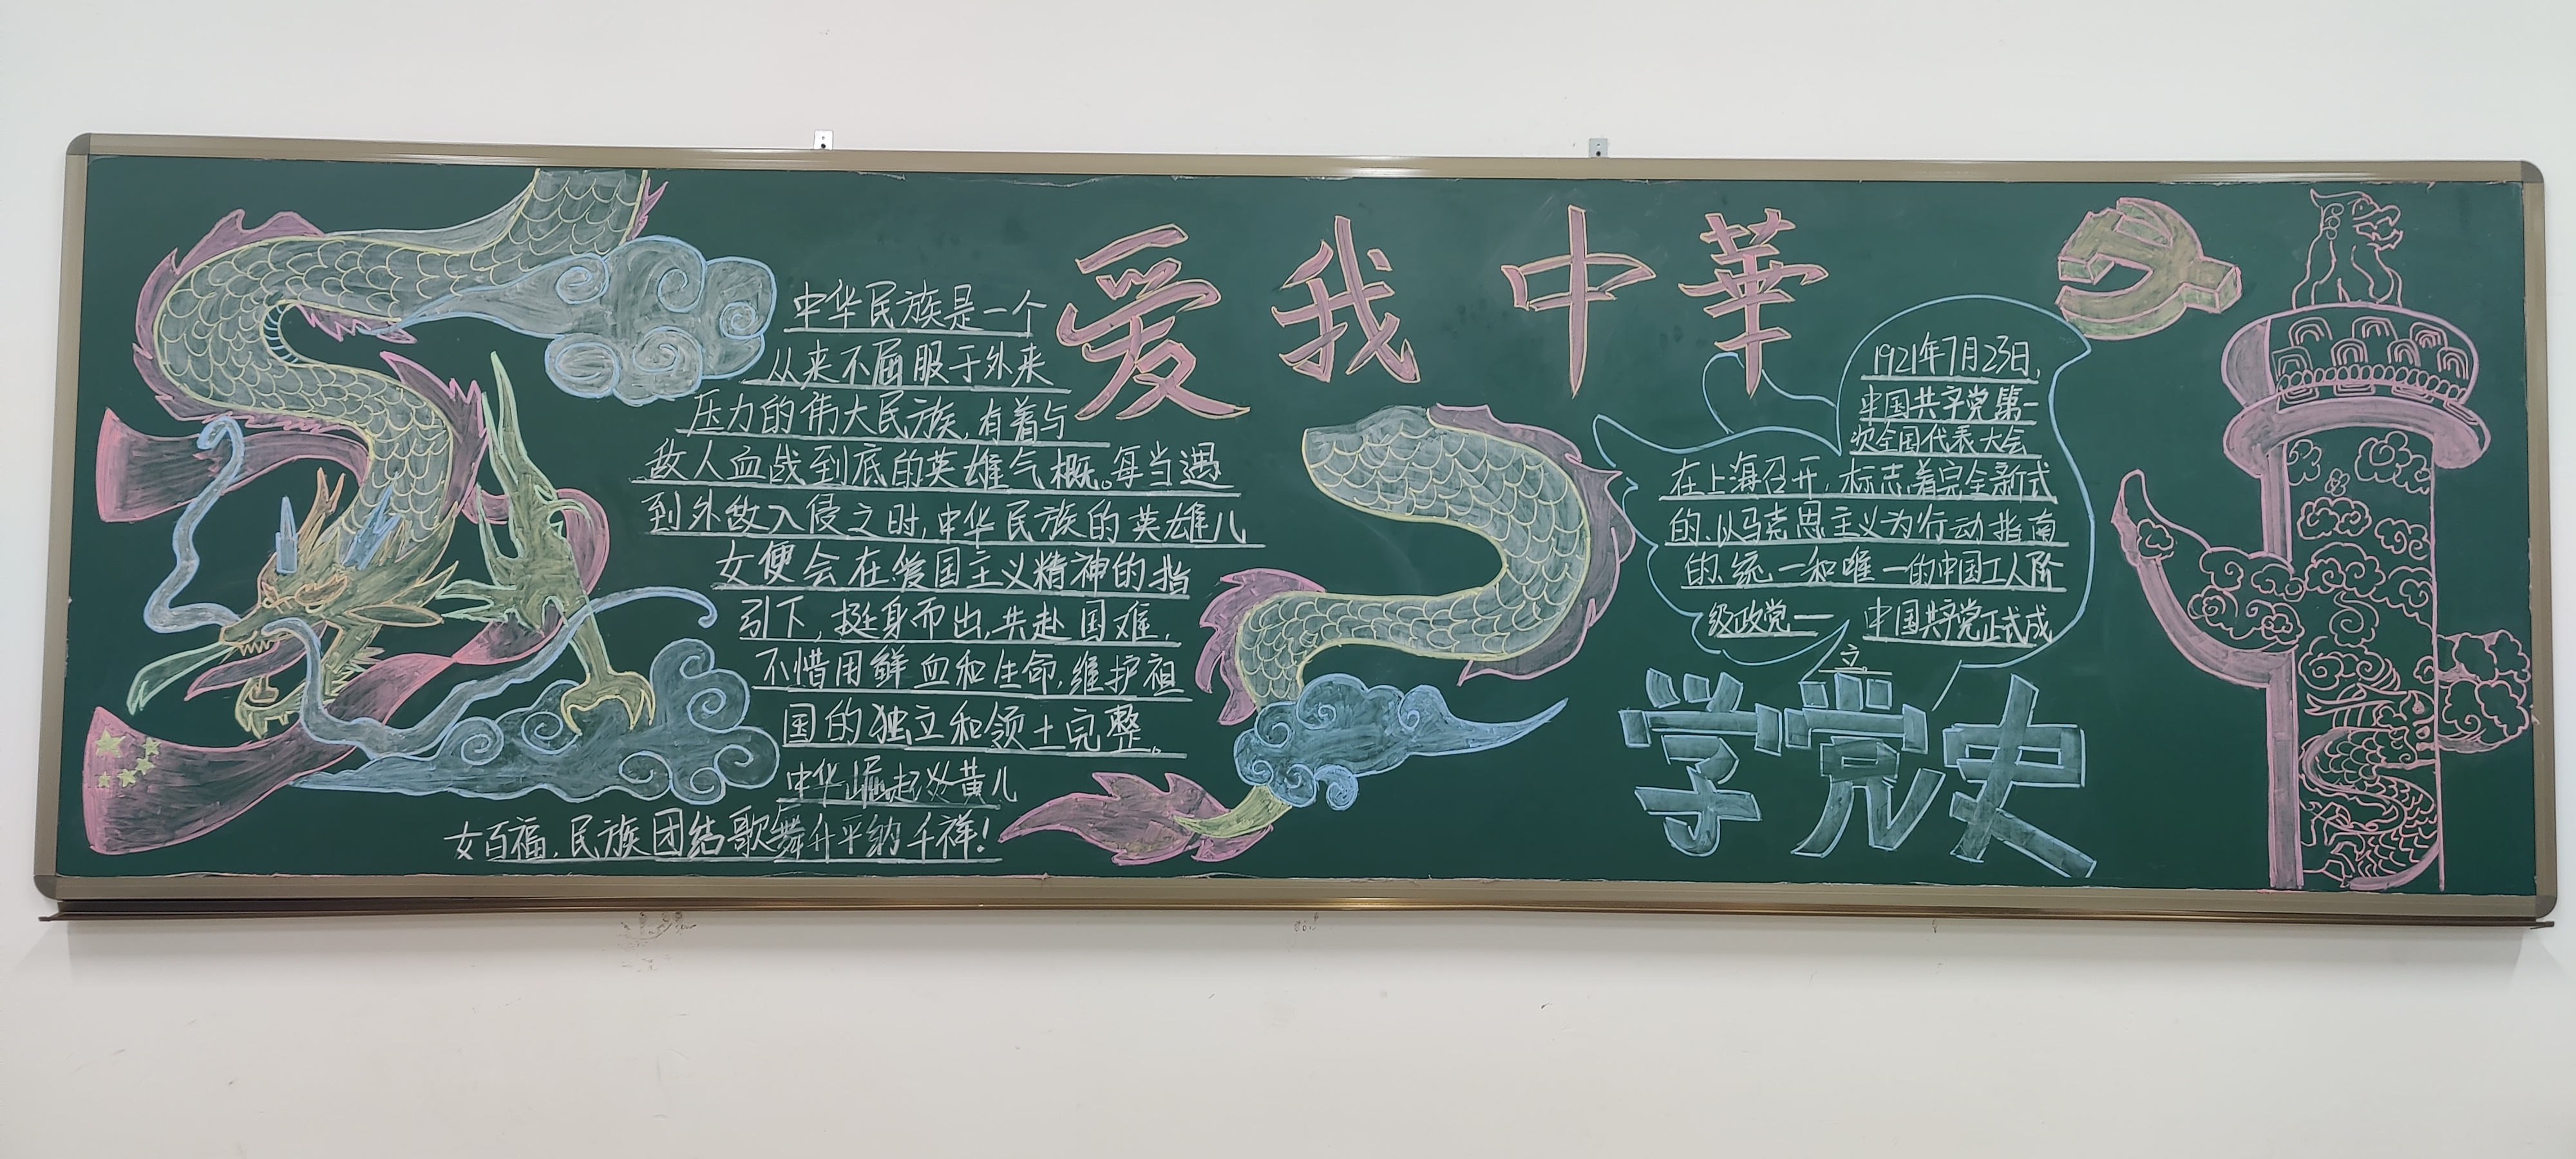 爱我中華
中华民族是一个
从来不屈服于外来
压力的伟大民族,有着与
敌人血战到底的英雄气概。每当遇
到外敌入侵之时,中华民族的英雄儿
女便会在爱国主义精神的指
引下,挺身而出,共赴国难,
不惜用鲜血和生命,维护祖
国的独立和领土完整。
中华崛起炎黄儿
女百福,民族团结歌舞升平纳千祥!
1921年7月23日,
中国共产党第一
次全国代表大会
在上海召开,标志着完全新式
的、以马克思主义为行动指南
的、统一和唯一的中国工人阶
级政党一 中国共产党正式成
立。
学党史